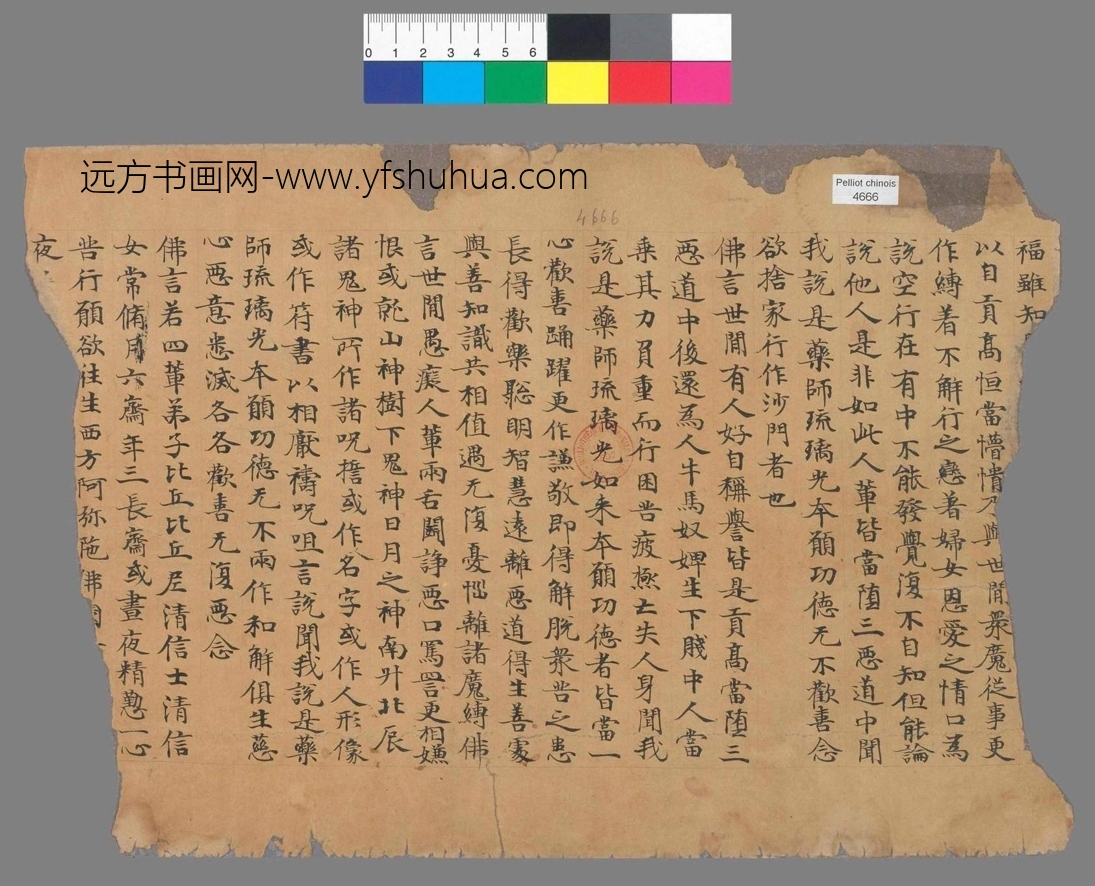 0 1 2 3 4 5 6
远方书画网-www.yfshuhua.com
Pelliot chinois
4666
4666
福雖知
以自貢高恒當懵憒乃與世間衆魔從事更
作縛著不解行之戀著婦女恩愛之情口為
說空行在有中不能發覺復不自知但能論
說他人是非如此人輩皆當墮三惡道中聞
我說是藥師琉璃光本願功德无不歡喜念
欲捨家行作沙門者也
佛言世間有人好自稱譽皆是貢高當墮三
惡道中後還為人牛馬奴婢生下賤中人當
乗其力負重而行困苦疲極亡失人身聞我
說是藥師琉璃光如来本願功德者皆當一
心歡喜踊躍更作謙敬即得解脫衆苦之患
長得歡樂聡明智慧遠離惡道得生善處
與善知識共相值遇无復憂惱離諸魔縛佛
言世間愚癡人輩兩舌闘諍惡口罵詈更相嫌
恨或就山神樹下鬼神日月之神南斗北辰
諸鬼神所作諸呪誓或作名字或作人形像
或作符書以相厭禱呪咀言說聞我說是藥
師琉璃光本願功德无不兩作和解俱生慈
心惡意悉滅各各歡喜无復惡念
佛言若四輩弟子比丘比丘尼清信士清信
女常脩月六齋年三長齋或晝夜精懃一心
苦行願欲往生西方阿弥陁佛國
夜